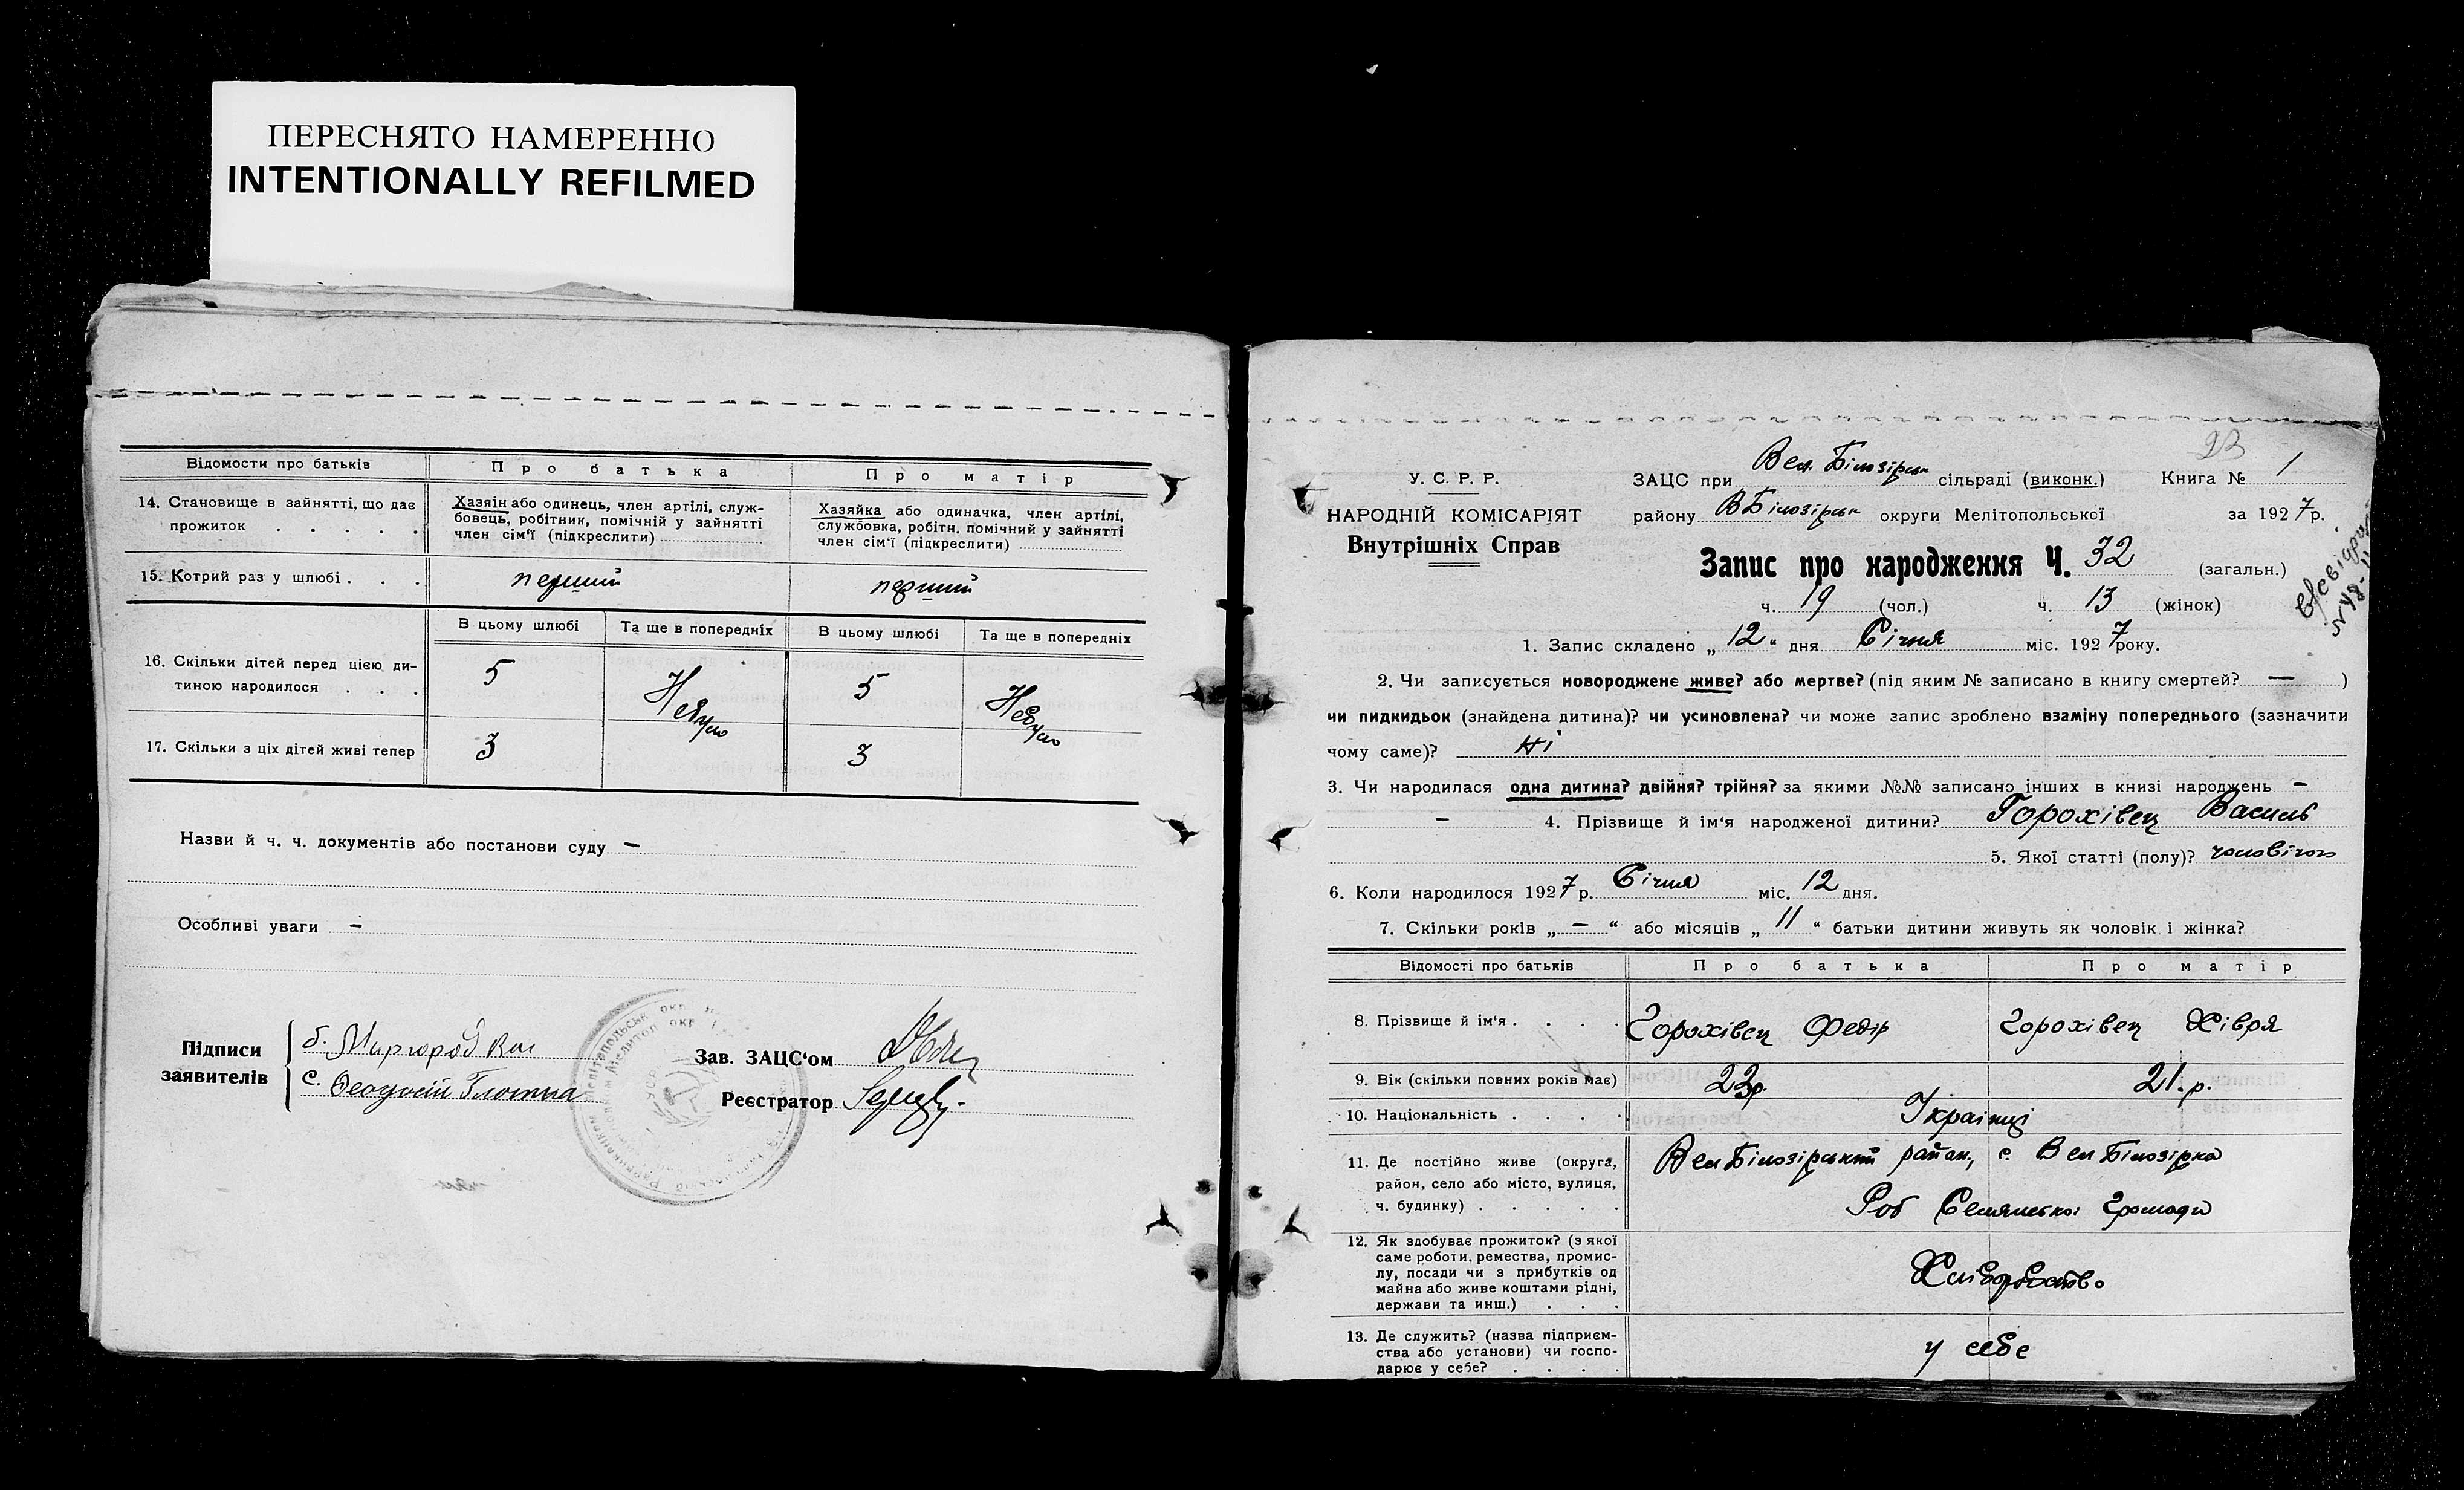 ПЕРЕСНЯТО НАМЕРЕННО
INTENTIONALLY REFILMED
Відомости про батьків
Про батька
Про матір
14. Становище в зайнятті, що дає
прожиток . . . .
Хазяін або одинець, член артілі, служ-
бовець, робітник, помічній у зайнятті
член сім'ї (підкреслити)
Хазяйка або одиначка, член артілі,
службовка, робітн. помічний у зайнятті
член сім'ї (підкреслити)
15. Котрий раз у шлюбі . . .
перший
перший
В цьому шлюбі
Та ще в попередніх
В цьому шлюбі
Та ще в попередніх
16. Скільки дітей перед цією ди-
тиною народилося . . .
5
Не було
5
Не було
17. Скільки з ціх дітей живі тепер
3
3
Назви й ч. ч. документів або постанови суду –
Особливі уваги –
Підписи
заявителів
б. Миргород
с. Феодосій
Зав. ЗАЦС'ом
Реєстратор
23
У. С. Р. Р.
НАРОДНІЙ КОМІСАРІЯТ
Внутрішніх Справ
ЗАЦС при Вел. Білозірськ сільраді (виконк.)
Книга № 1
району ВБілозірськ округи Мелітопольської
за 1927 р.
Запис про народження Ч. 32 (загальн.)
ч. 19 (чол.) ч. 13 (жінок)
1. Запис складено „12“ дня Січня міс. 1927 року.
2. Чи записується новороджене живе? або мертве? (під яким № записано в книгу смертей? — )
чи пидкидьок (знайдена дитина)? чи усиновлена? чи може запис зроблено взаміну попереднього (зазначити
чому саме)? Ні
3. Чи народилася одна дитина? двійня? трійня? за якими №№ записано інших в книзі народжень –
– 4. Прізвище й ім'я народженої дитини? Горохівец Василь
5. Якої статті (полу)? чоловічого
6. Коли народилося 1927 р. Січня міс. 12 дня.
7. Скільки років „ — “ або місяців „ 11 “ батьки дитини живуть як чоловік і жінка?
Відомості про батьків
Про батька
Про матір
8. Прізвище й ім'я . . . .
Горохівец Федір
Горохівец Хівря
9. Вік (скільки повних років має)
22р.
21.р.
10. Національність . . . .
Українці
11. Де постійно живе (округа,
район, село або місто, вулиця,
ч. будинку) . . . . .
Вел Білозірський район, с. Вел Білозірка
громади
12. Як здобуває прожиток? (з якої
саме роботи, ремества, промис-
лу, посади чи з прибутків од
майна або живе коштами рідні,
держави та инш.) . . .
Хліборобство
13. Де служить? (назва підприєм-
ства або установи) чи госпо-
дарює у себе? . . . .
у себе